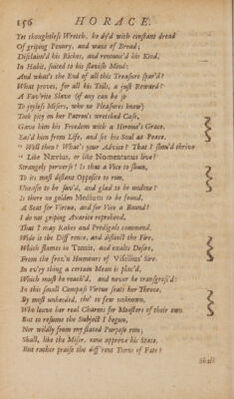 156 HORACE.
Yet thoughtless Wretch, he dy'd with constant dread
Of griping Penury, and want of Bread;
Disclaim'd his Riches, and renounc'd his Kind,
In Habit, suited to his slavish Mind:
And what's the End of all this Treasure spar'd?
What proves, for all his Toils, a just Reward?
A Fav'rite Slave (if any can be so
To joyless Misers, who no Pleasures know)
Took pity on her Patron's wretched Case,
Gave him his Freedom with a Grace,
Eas'd him from Life, and set his Soul at Peace.
" Well then? What's your Advice? That I shou'd thrive
" Like Nævius, or like Nomentanus live?
Strangely perverse! Is thus a Vice to shun,
To its most distant Opposite to run,
Uneasie to be sav'd, and glad to be undone?
Is there no golden Medium to be found,
A Seat for Virtue, and for Vice a Bound?
I do not griping Avarice reprehend,
That I may Rakes and Prodigals commend.
Wide is the Diff'rence, and distinct the Fire,
Which flames in Tannis, and exalts Desire,
From the froz'n Humours of Visellius' Sire.
In ev'ry thing a certain Mean is plac'd,
Which must be reach'd, and never be transgress'd:
In this small Compass Virtue seats her Throne,
By most unheeded, tho' to few unknown,
Who leave her real Charms for Monsters of their own.
But to resume the Subject I begun,
Nor wildly from my stated Purpose run;
Shall, like the Miser, none approve his State,
But rather praise the diff'rent Turns of Fate?
Shall